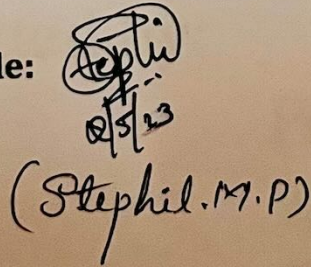 le:
Stephil
2/5/23
(Stephil.M.P)